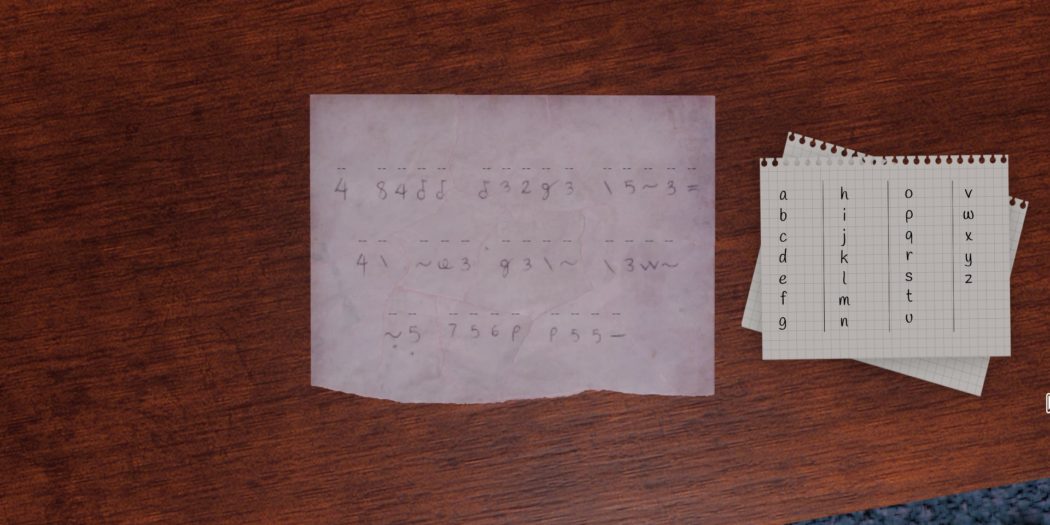 4 84δδ δ32g3 \5~3=
4\ ~e3 g3\~ \3w~
~5 756p p55—
a
b
c
d
e
f
g
h
i
j
k
l
m
n
o
p
q
r
s
t
u
v
w
x
y
z